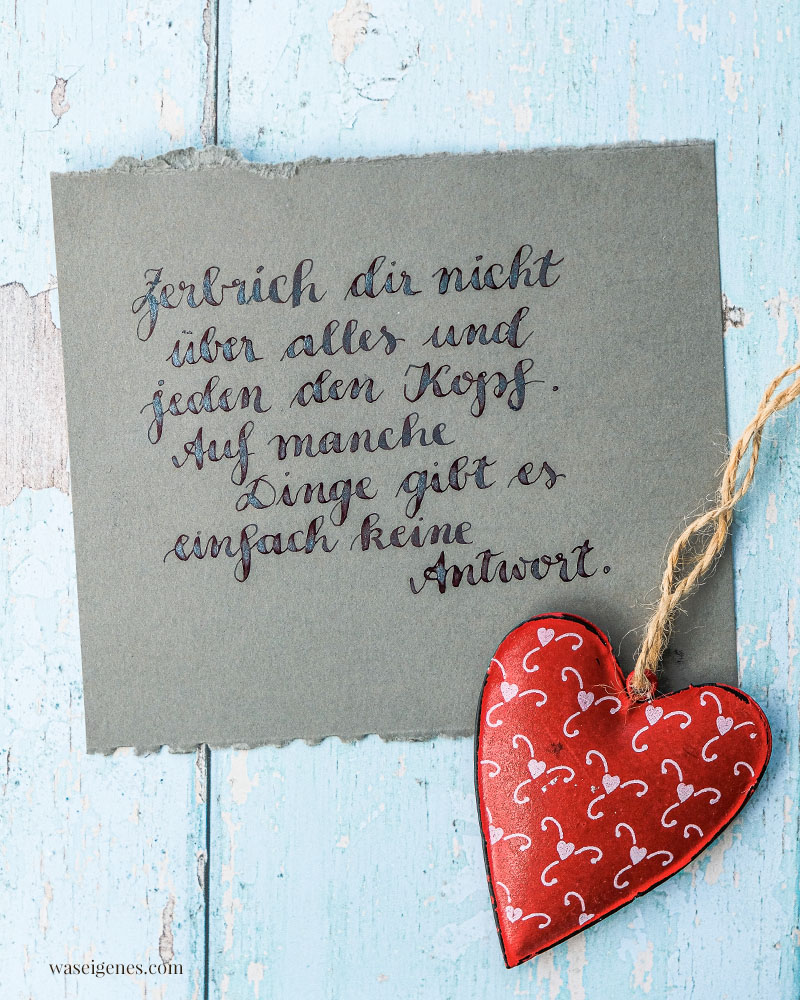 Zerbrich dir nicht
über alles und
jeden den Kopf.
Auf manche
Dinge gibt es
einfach keine
Antwort.
waseigenes.com